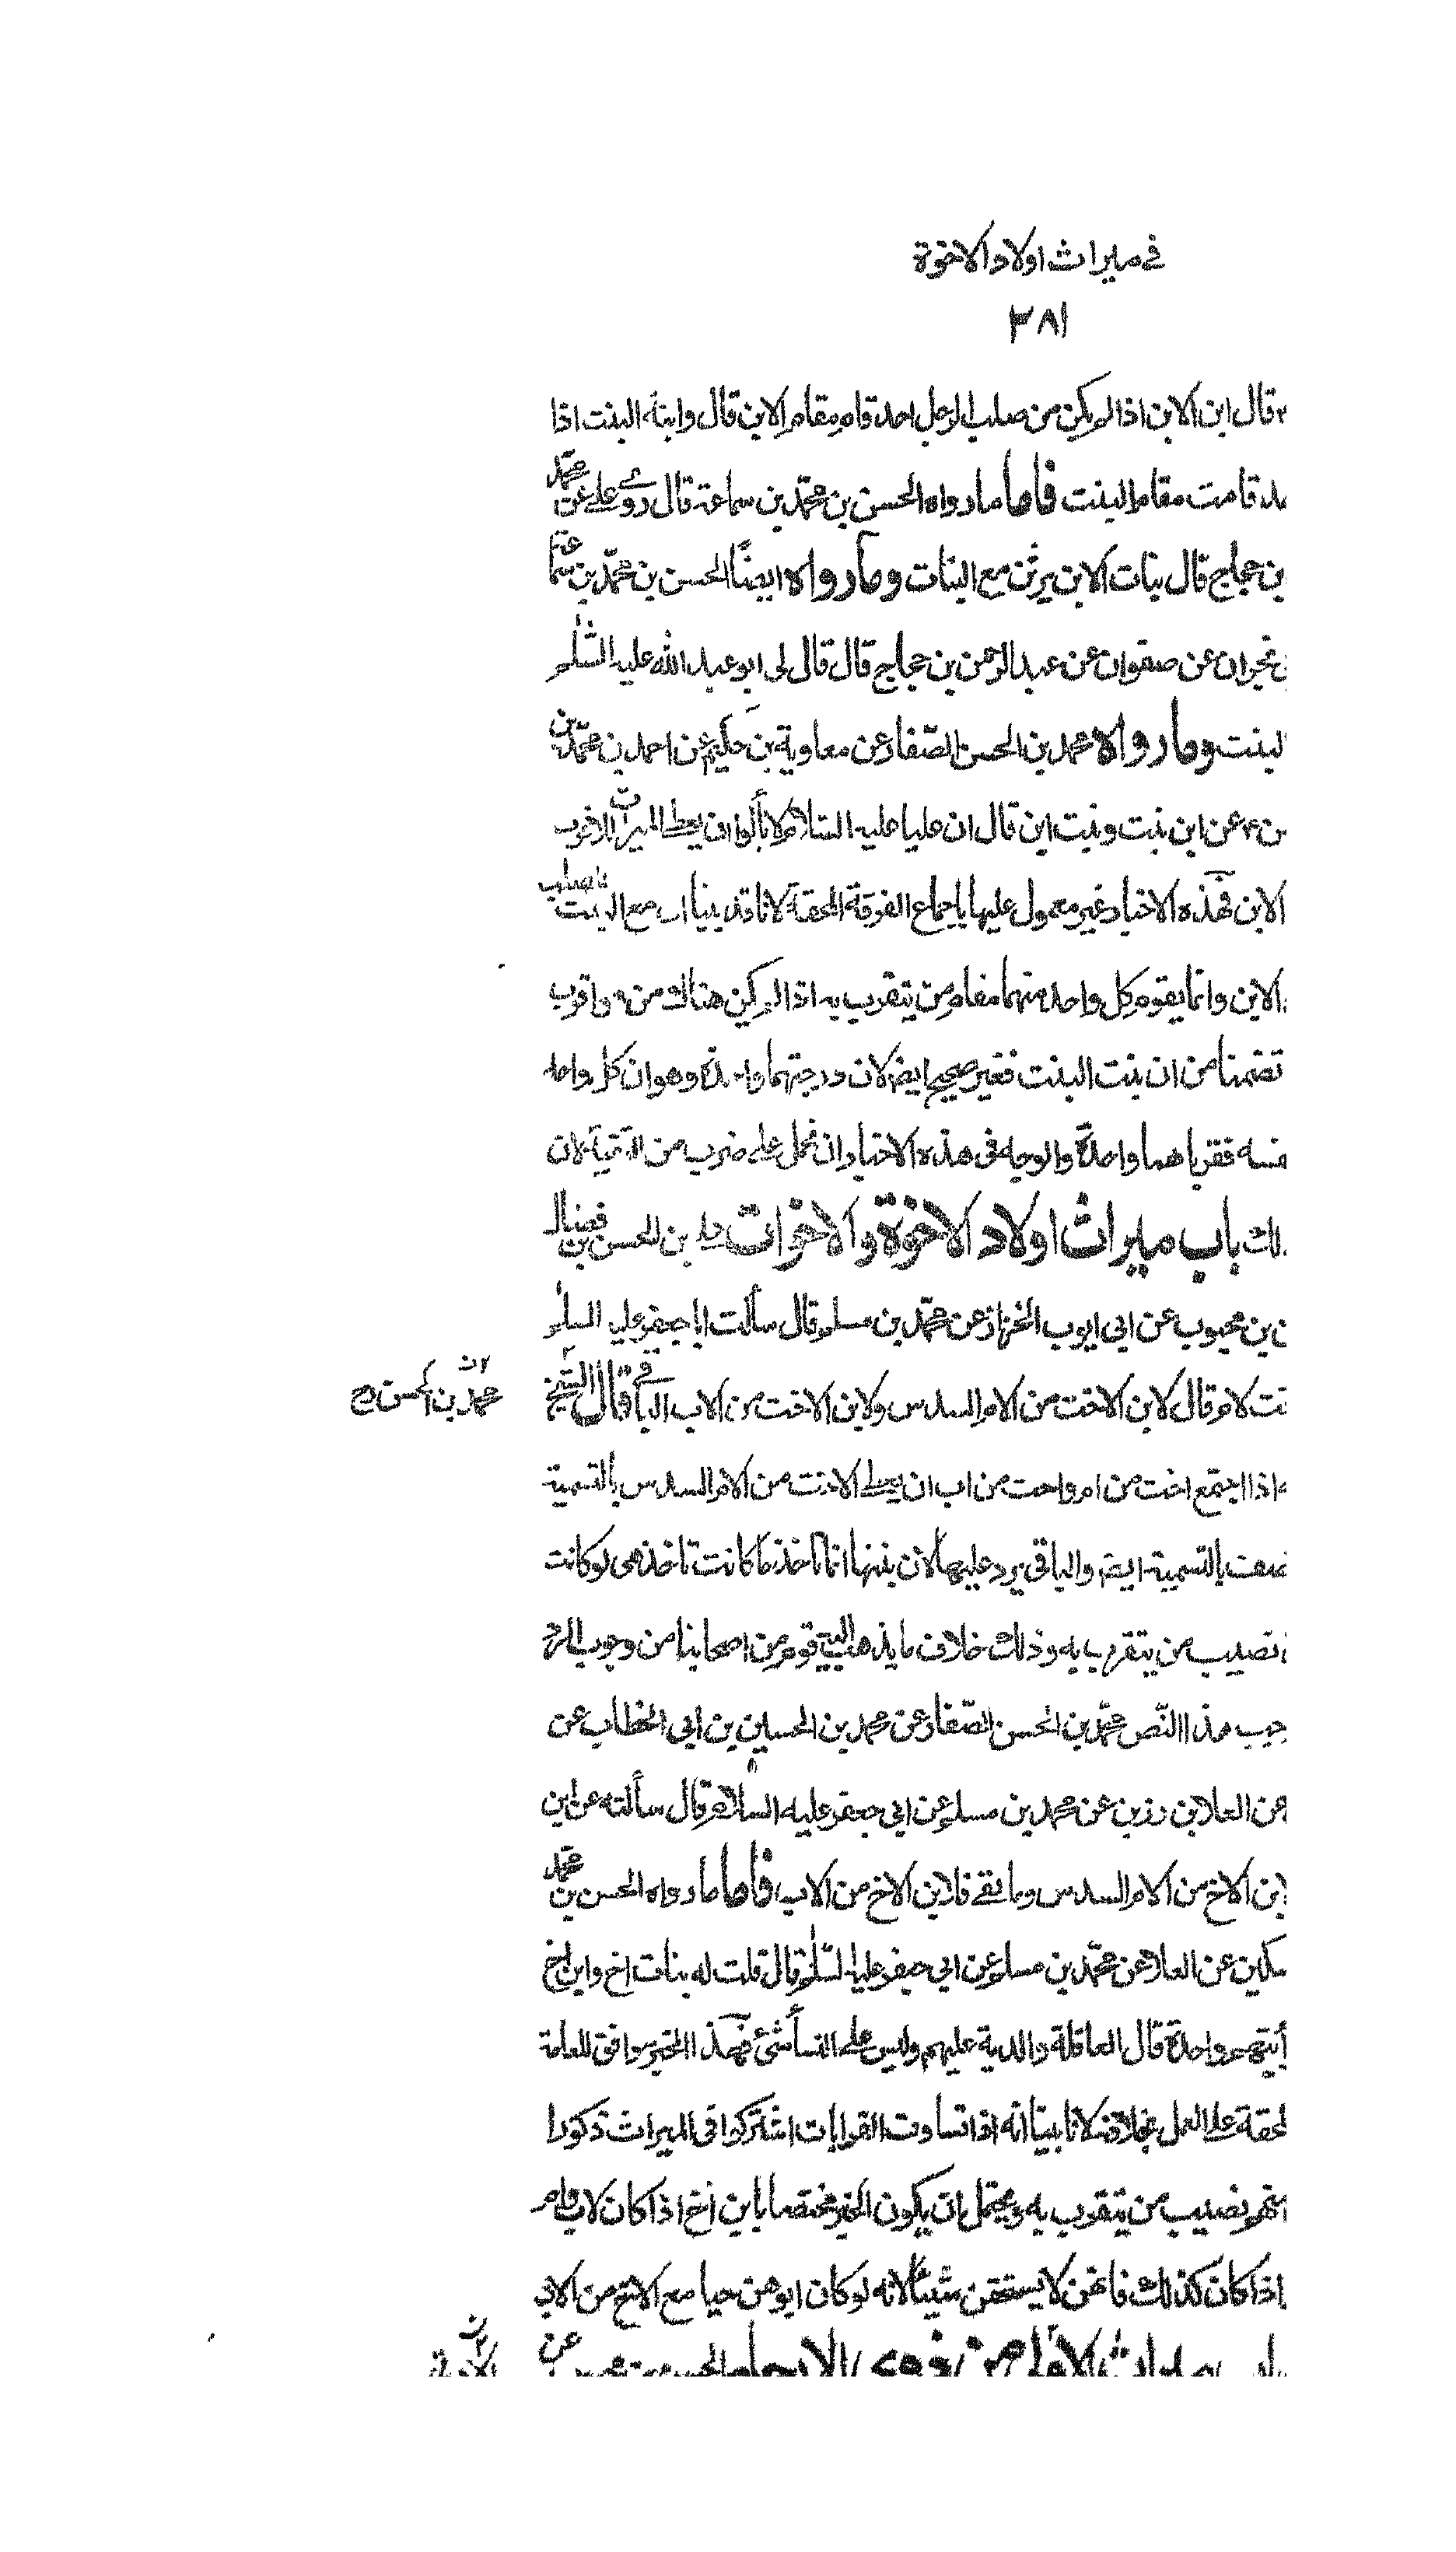 في ميراث اولاد الاخوة
٣٨١
قال ابن الابن اذا لم يكن من صلب الرجل احد قام مقام الابن قال وابنة البنت اذا
قامت مقام البنت فاما ما رواه الحسن بن محمد بن سماعة قال روى علي عن محمد
بن حجاج قال بنات الابن يرثن مع البنات وما رواه ايضًا الحسن بن محمد بن سماعة
نجران عن صفوان عن عبد الرحمن بن حجاج قال قال لى ابو عبد الله عليه السّلم
البنت وما رواه محمد بن الحسن الصّفار عن معاوية بن حكيم عن احمد بن محمّد بن
عن ابن بنت وبنت ابن قال ان عليا عليه السّلام لا يألوا ان يعطى الميراث الاقرب
الابن فهذه الاخبار غير معمول عليها باجماع الفرقة المحقة لانا قد بينا ان مع البنت
الابن وانما يقوم كل واحد منهما مقام من يتقرب به اذا لم يكن هناك من هو اقرب
تضمنا من ان بنت البنت فغير صحيح ايضا لان درجتهما واحدة وهو ان كل واحد
فقرباهما واحدة والوجه فى هذه الاخبار ان نحمل على ضرب من التقية لان
باب ميراث اولاد الاخوة والاخوات على بن الحسن بن فضال
بن محبوب عن ابي ايوب الخزاز عن محمّد بن مسلم قال سألت ابا جعفر عليه السلم
لام قال لابن الاخت من الام السدس ولابن الاخت من الاب الباقي قال الشيخ
محمد بن الحسن
اذا اجتمع اخت من ام واخت من اب ان يعطى الاخت من الام السدس بالتسمية
بالتسمية ايضا والباقى يرد عليها لان بنتها انما تاخذ ما كانت تاخذ هى لو كانت
نصيب من يتقرب به وذلك خلاف ما يذهب اليه قوم من اصحابنا من وجوب الرد
هذا النّص محمّد بن الحسن الصّفار عن محمد بن الحسين بن ابي الخطاب عن
عن العلا بن رزين عن محمد بن مسلم عن ابي جعفر عليه السلام قال سألته عن ابن
لابن الاخ من الام السدس وما بقى فلابن الاخ من الاب فاما ما رواه الحسن بن محمد
سكين عن العلا عن محمّد بن مسلم عن ابي جعفر عليه السّلم قال قلت له بنات اخ وابن اخ
واحدة قال العاقلة والدية عليهم وليس على النسأ شئ فهذا الخبر موافق للعامة
المحقة على العمل بخلافه لانا بينا انه اذا تساوت القرابات اشتركوا فى الميراث ذكورا
منهم نصيب من يتقرب به ويحتمل ان يكون الخبر مختصا بابن اخ اذا كان لاب وام
اذا كان كذلك فانهن لا يستحقن شيئا لانه لو كان ابوهن حيا مع الاخ من الاب